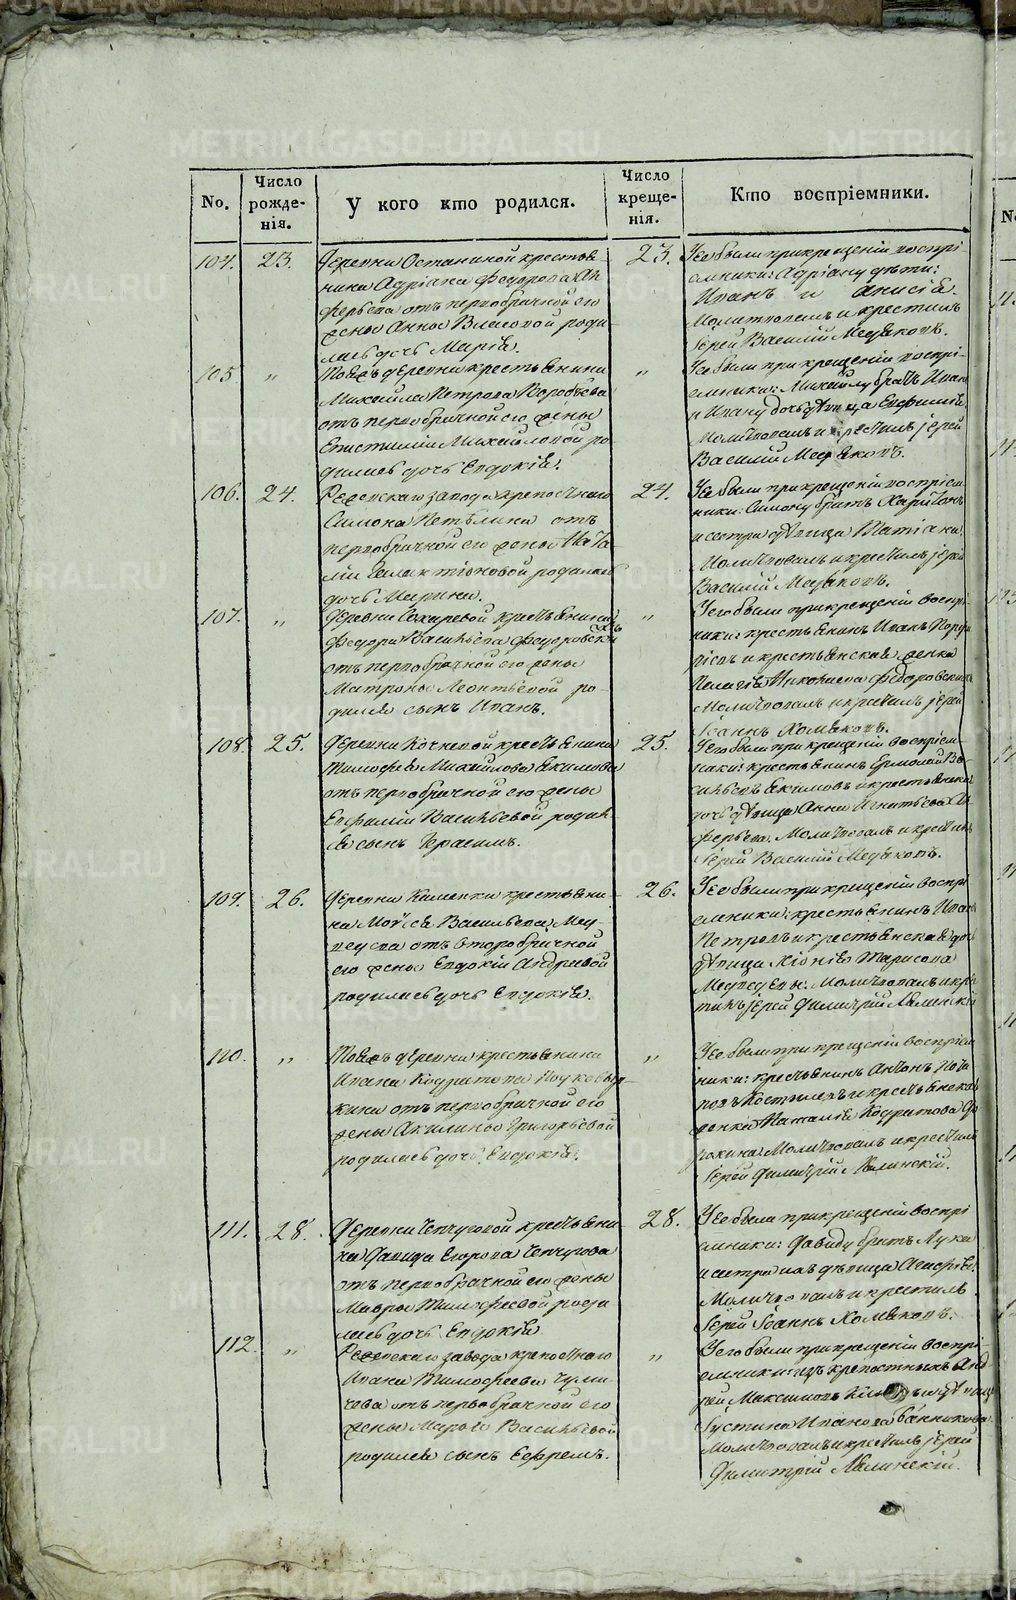 METRIKI.GASO-URAL.RU
No.
Число рожде-нія.
У кого кто родился.
Число креще-нія.
Кто воспріемники.
104. 23.
Деревни Останиной крестья-
нина Адріана Федорова
отъ первобрачной его
жены Анны Власовой роди-
лась дочь Марія.
23.
У ее были при крещеніи воспрі-
емники: Адріану дѣти:
Иванъ и Анисія.
Молитвовалъ и крестилъ
Іерей Василій Медяковъ.
105 „
Тояжъ деревни крестьянина
Михаила Петрова Воробьева
отъ первобрачной его жены
Михайловой ро-
дилась дочь Евдокія.
„
У ее были при крещеніи воспрі-
емники: Михайлу братъ Иванъ
и Ивану дочь дѣвица Евфимія
Молитвовалъ и крестилъ іерей
Василій Медяковъ.
106. 24.
Режевскаго завода крепостнаго
Симона отъ
первобрачной его жены Ната-
ліи Галактіоновой родилась
дочь Марина.
24.
У ее были при крещеніи воспріем-
ники: Симону братъ Харитонъ
и сестра дѣвица Татіана
Молитвовалъ и крестилъ іерей
Василій Медяковъ.
107. „
Деревни крестьянина
Федора Васильева Федоровскихъ
отъ первобрачной его жены
Матроны Леонтьевой ро-
дился сынъ Иванъ.
„
У его были при крещеніи воспріем-
ники: крестьянинъ Иванъ
и крестьянская жена
Пелагія Николаева Федоровскихъ
Молитвовалъ и крестилъ іерей
Іоаннъ Хомяковъ.
108. 25.
Деревни Кочневой крестьянина
Тимофея Михайлова Екимова
отъ первобрачной его жены
Евфиміи Васильевой родил-
ся сынъ Герасимъ.
25.
У его были при крещеніи воспріем-
ники: крестьянинъ Ермолай Ва-
сильевъ Екимовъ и крестьянская
дочь дѣвица Анна Игнатьева
Молитвовалъ и крестилъ
Іерей Василій Медяковъ.
109. 26.
Деревни Каменки крестьяни-
на Мойсея Васильева Мед-
ведева отъ второбрачной
его жены Евдокіи Андреевой
родилась дочь Евдокія.
26.
У ее были при крещеніи воспрі-
емники: крестьянинъ Иванъ
Петровъ и крестьянская дочь
дѣвица Хіонія Тарасова
Медведевы. Молитвовалъ и крес-
тилъ Іерей Димитрій
110. „
Тояжъ деревни крестьянина
Ивана Кодратова
отъ первобрачной его
жены Акилины Григорьевой
родилась дочь Евдокія.
„
У ее были при крещеніи воспріем-
ники: крестьянинъ Антонъ
и крестьянская
женка Наталія Кодратова
Молитвовалъ и крестилъ
Іерей Димитрій
111. 28.
Деревни Чепчуговой крестьяни-
на Давида Егорова Чепчугова
отъ первобрачной его жены
Мавры Тимофеевой роди-
лась дочь Евдокія
28.
У ее были при крещеніи воспрі-
емники: Давиду братъ Лука
и сестра дѣвица Агафія.
Молитвовалъ и крестилъ
Іерей Іоаннъ Хомяковъ.
112. „
Режевскаго завода крепостнаго
Ивана Тимофеева
отъ первобрачной его
жены Марьи Васильевой
родился сынъ Ефремъ.
„
У его были при крещеніи воспрі-
емники: изъ крепостныхъ Анд-
рей Максимовъ и дѣвица
Устинья Иванова Банникова
Молитвовалъ и крестилъ іерей
Димитрій